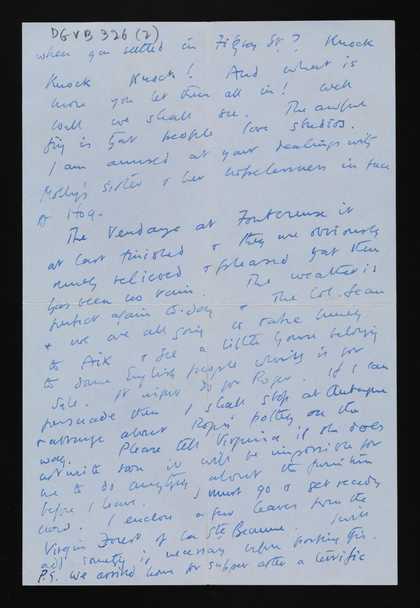 DGVB 326 (2)
when you settled in Fitzroy St.? Knock
Knock Knock! And what is
more you let them all in! Well
well we shall see. The awful
thing is that people love studios.
I am amused at your dealings with
Molly's sister & her hopelessness in face
of Hog.
The Vendange at Fontcreuse is
at last finished & they are obviously
relieved & pleased that there
has been no rain. The weather is
perfect again to-day & the Col. Jean
& we are all going
to Aix & see a little house belonging
to some English people which is for
Sale. It might do for Roger. If I can
persuade them I shall stop at Aubagne
& arrange about Roger's pottery on the
way. Please tell Virginia if she does
not write soon it will be impossible for
me to do anything about the furniture
before I leave. I must go & get ready
now. I enclose a few leaves from the
Virgin Forest of La Ste Beaume.
add something if necessary when posting this.
P.S. We arrived home for supper after a terrific